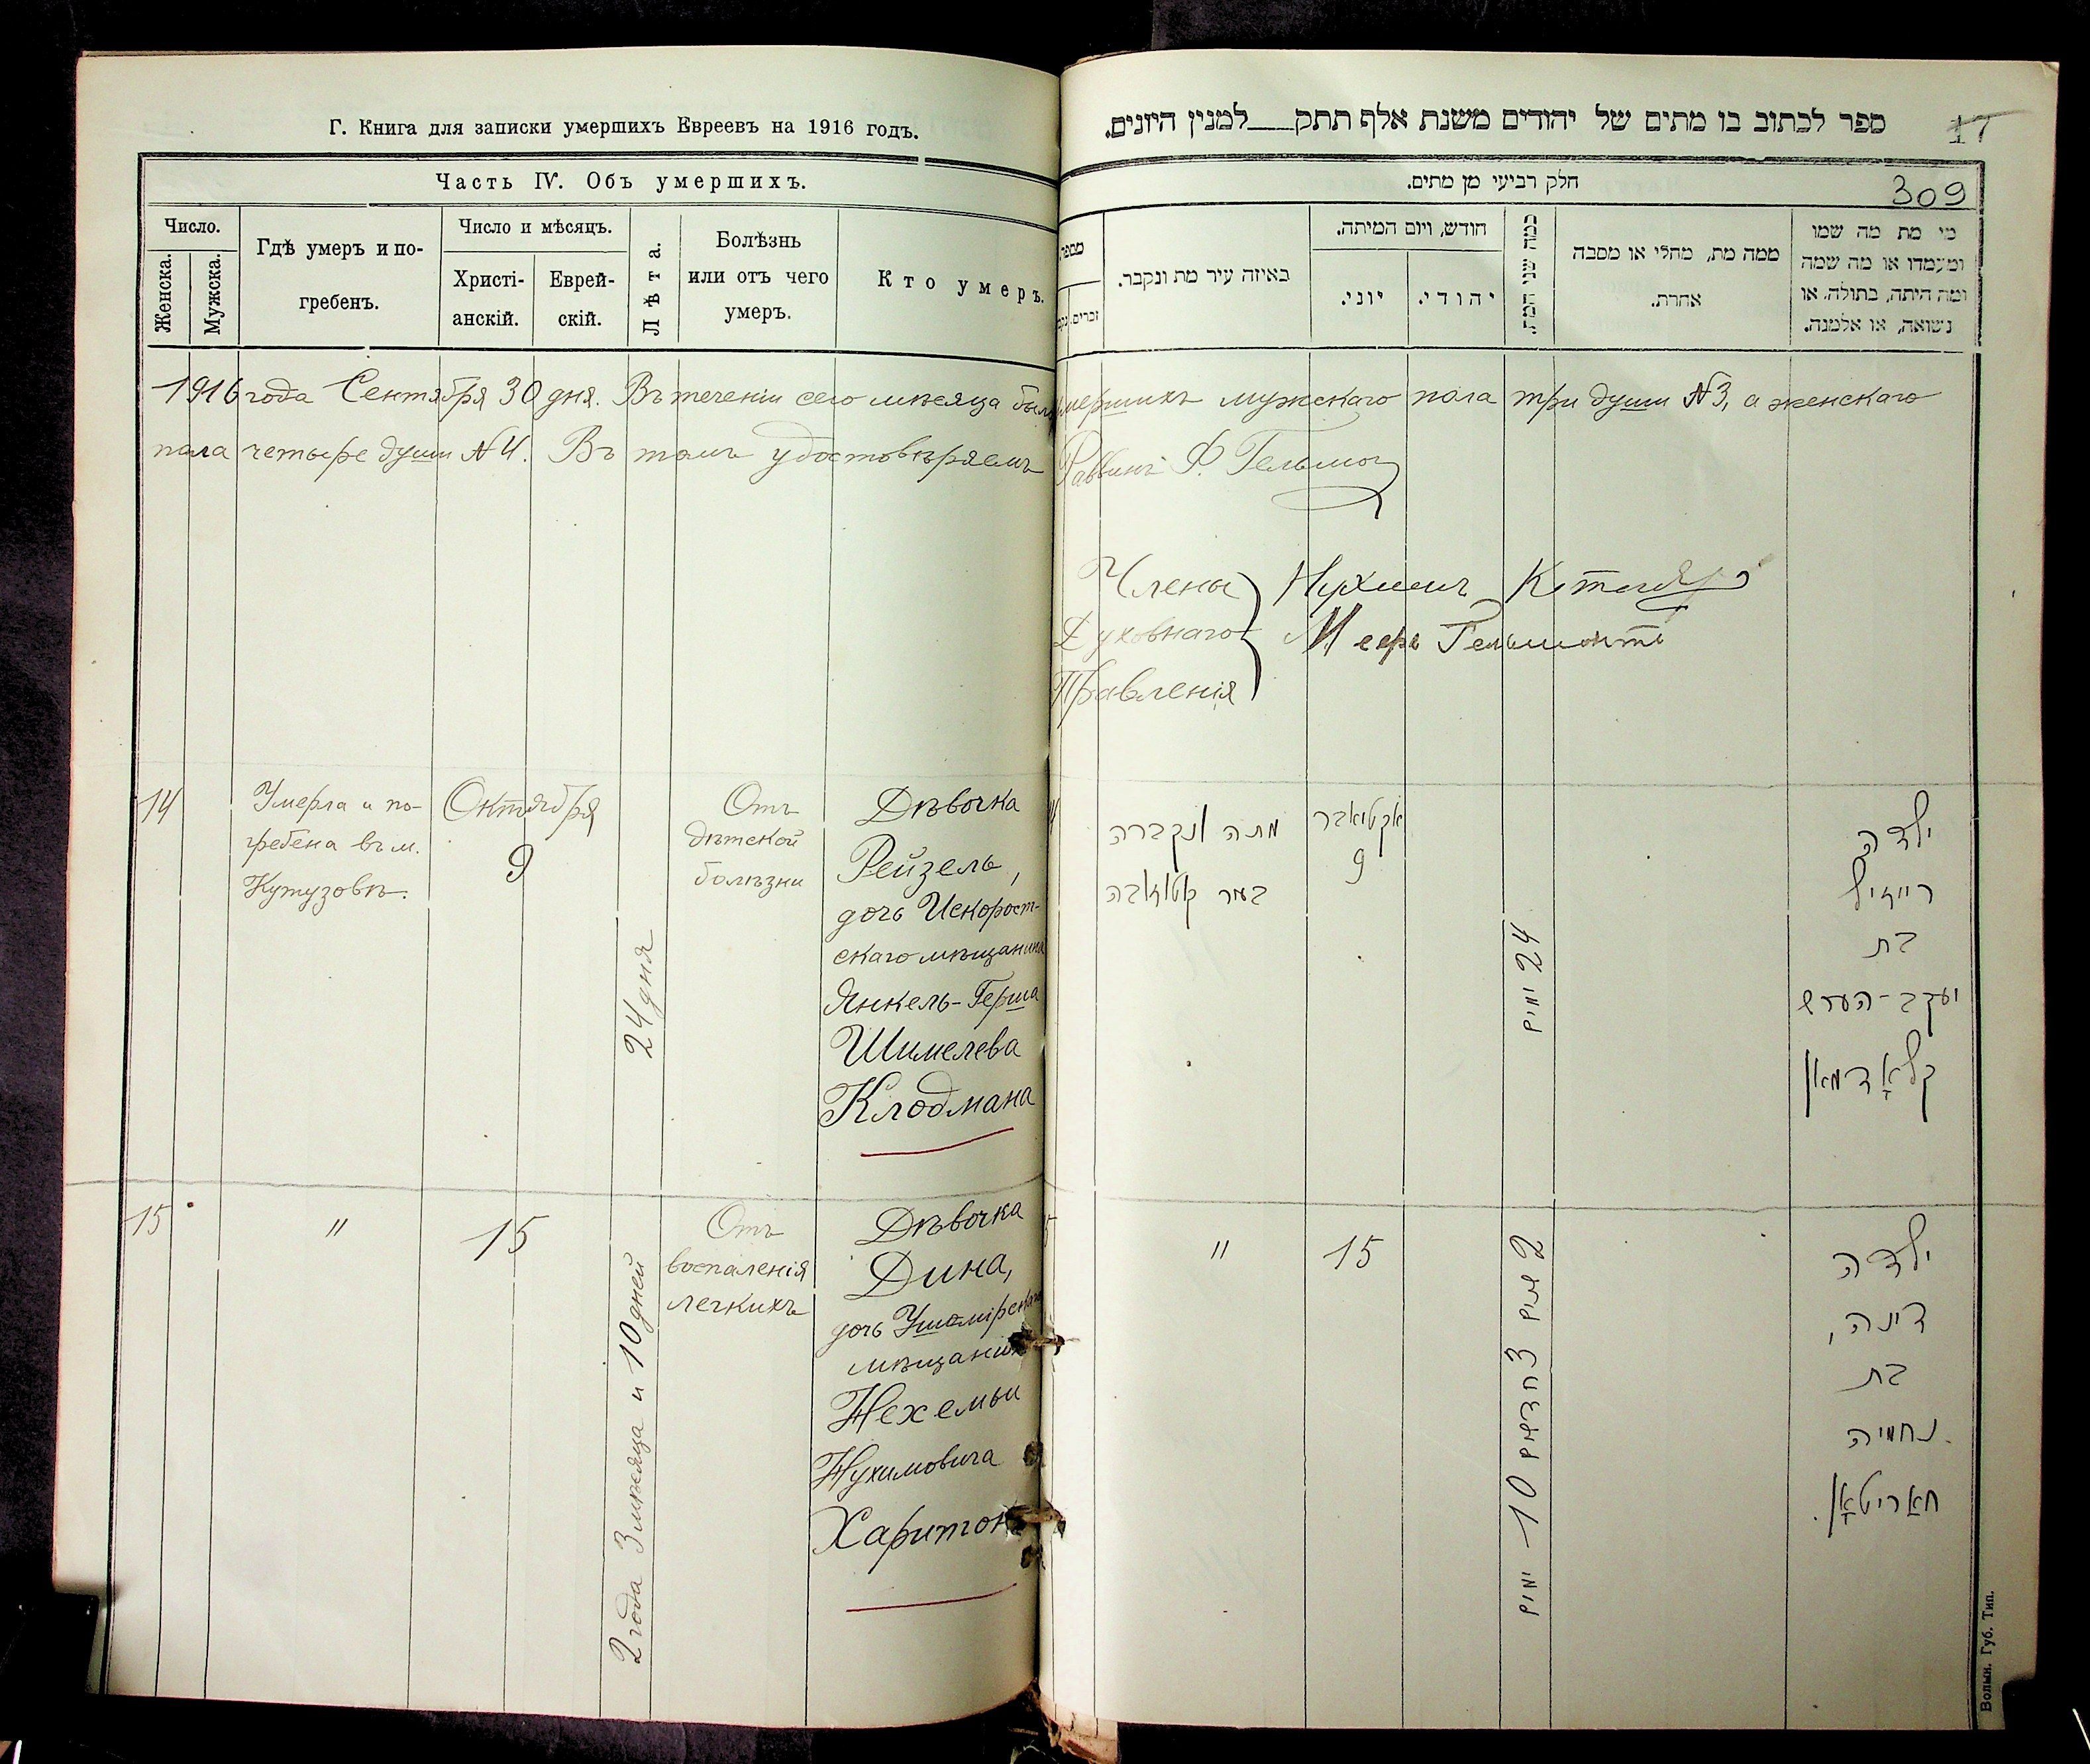 Г. Книга для записки умершихъ Евреевъ на 1916 годъ.
Часть IV. Объ умершихъ.
Число.
Женска.
Мужска.
Гдѣ умеръ и по-
гребенъ.
Число и мѣсяцъ.
Христі-
анскій.
Еврей-
скій.
Лѣта.
Болѣзнь
или отъ чего
умеръ.
Кто умеръ.
ספר לכתוב בו מתים של יהודים משנת אלף תתק___למנין היזנים.
17
חלק רביעי מן מתים.
309
מספר
זכרים.
באיזה עיר מת ונקבר.
חודש, ויום המיתה.
יוני.
יהודי.
כמה שני המת.
ממה מת, מחלי או מסבה
אחרת.
מי מת מה שמו
ומעמדו או מה שמה
ומה היתה, בתולה, או
נשואה, או אלמנה.
1916 года Сентября 30 дня. Въ теченіи сего мѣсяца было умершихъ мужскаго пола три души №3, а женскаго
пола четыре души №4. Въ томъ удостовѣряемъ Раввинъ Ф.
Члены
Духовнаго
Правленія
Нухимъ
Мееръ Гельмонтъ
14
Умерла и по-
гребена въ м.
Кутузовѣ.
Октября
9
24 дня
Отъ
дѣтской
болѣзни
Дѣвочка
Рейзель,
дочь Искорост-
скаго мѣщанина
Янкель-Герша
Шимелева
Клодмана
מתה ונקברה
בעיר קוטוזאבה
אקטיאבר
9
24 ימים
ילדה
רייזיל
בת
יעקב-הערש
קלאָדמאן
15
"
15
2 года 3 мѣсяца и 10 дней
Отъ
воспаленія
легкихъ
Дѣвочка
Дина,
дочь Ушомірскаго
мѣщанина
Нехемьи
Нухимовича
Харитон
"
15
2 שנים 3 חדשים 10 ימים
ילדה
דינה,
בת
נחמיה
חאריטאָן.
Волын. Губ. Тип.